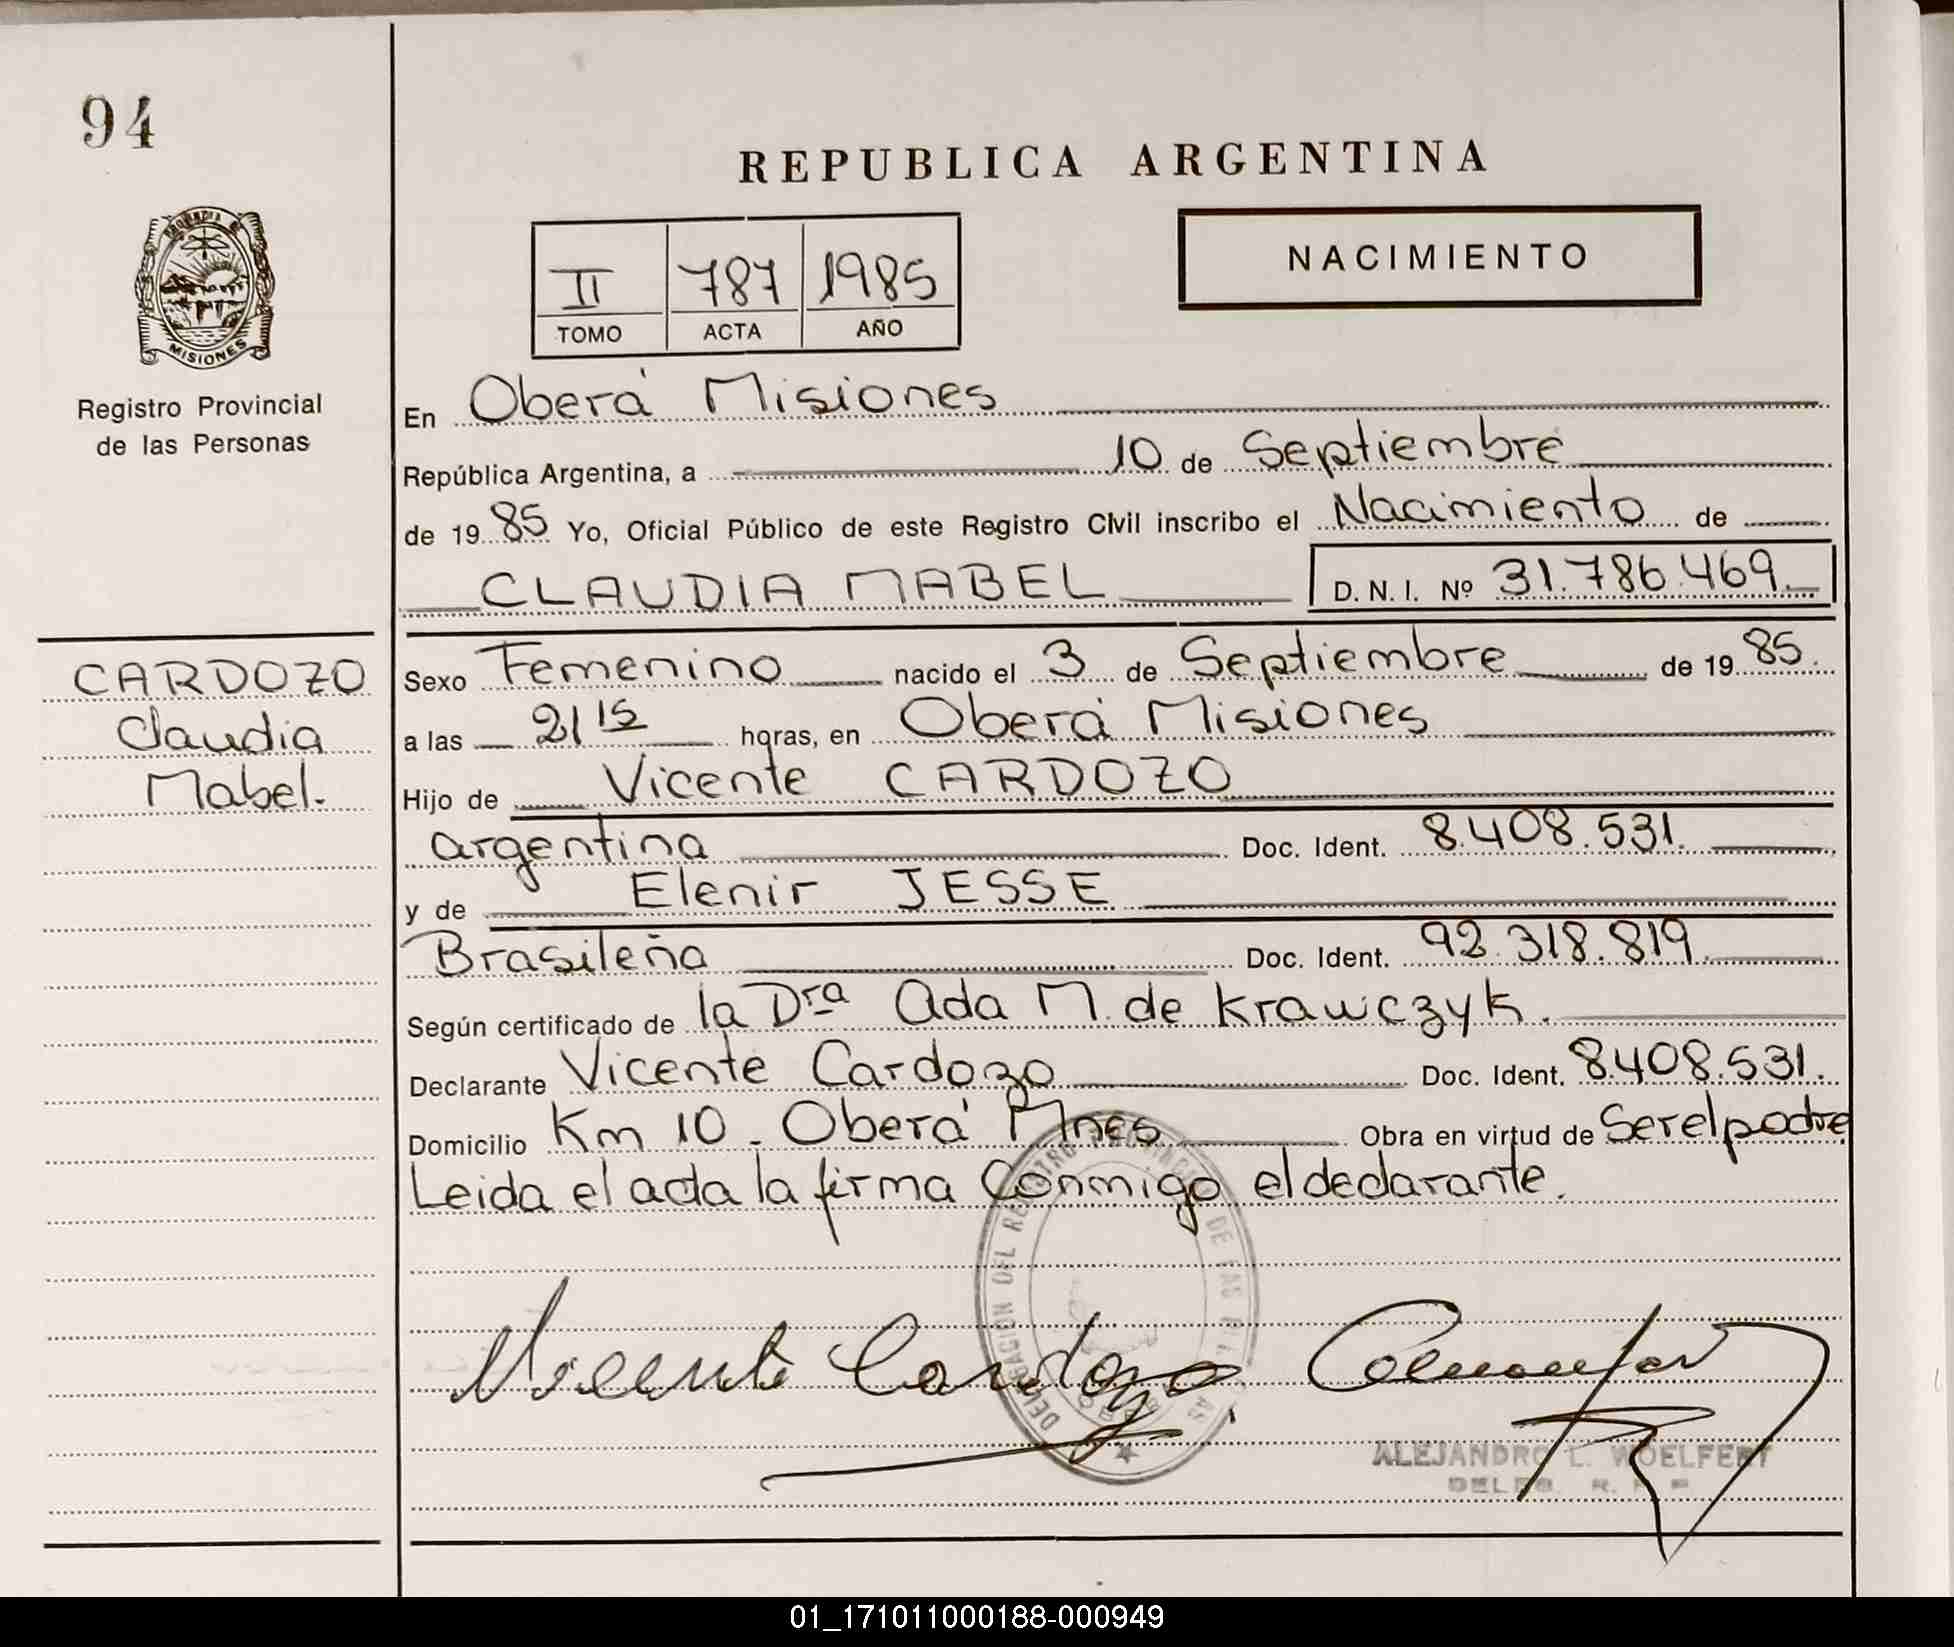 94
REPUBLICA ARGENTINA
NACIMIENTO
II 787 1985
TOMO ACTA AÑO
MISIONES
Registro Provincial
de las Personas
En Oberá Misiones
República Argentina, a 10 de Septiembre
de 1985 Yo, Oficial Público de este Registro Civil inscribo el Nacimiento de
CLAUDIA MABEL D. N. I. Nº 31.786.469.
CARDOZO
Claudia
Mabel.
Sexo Femenino nacido el 3 de Septiembre de 1985.
a las 21 15 horas, en Oberá Misiones
Hijo de Vicente CARDOZO
argentina Doc. Ident. 8.408.531.
y de Elenir JESSE
Brasileña Doc. Ident. 92.318.819.
Según certificado de la Dra Ada M. de Krawczyk.
Declarante Vicente Cardozo Doc. Ident. 8.408.531.
Domicilio Km 10 - Oberá Mnes Obra en virtud de Ser el padre
Leida el acta la firma Conmigo el declarante.
DELEGACION DEL REGISTRO PROVINCIAL DE LAS PERSONAS
Vicente Cardozo
ALEJANDRO L. WOELFERT
01_171011000188-000949